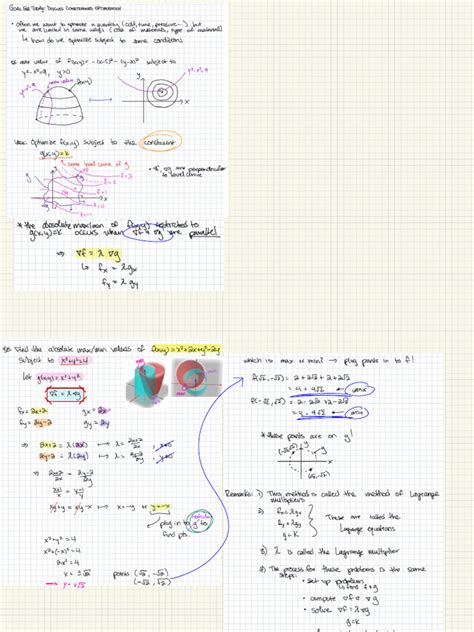 Goal For Today: Discuss Constrained Optimization
• often we want to optimize a quantity (cost, time, pressure...), but
we are limited in some ways (cost of materials, type of materials)
↳ how do we optimize subject to some conditions
max value of f(x,y) = subject to
y
x
View: Optimize f(x,y) subject to the constraint
g(x,y)=k
some level curve of g
• ∇f, ∇g are perpendicular
to level curve
y
x
* the absolute max/min of f(x,y) restricted to
g(x,y)=k occurs when ∇f & ∇g are parallel
⇒ ∇f = λ∇g
↳ fx = λgx
fy = λgy
Find the absolute max/min values of f(x,y) = x²+2x+y²-2y
subject to x²+y²=4
Let g(x,y)=x²+y².
∇f = λ∇g
fx = 2x+2 gx = 2x
fy = 2y-2 gy = 2y
⇒ 2x+2 = λ(2x) ↦ λ = 2x+2/2x
2y-2 = λ(2y) ↦ λ = 2y-2/2y
⇒ 2x+2/2x = 2y-2/2y
x+1/x = y-1/y
xy+y = xy-x ↦ x=-y or y=-x
plug in to g to
find pts.
x²+y²=4
x²+(-x)²=4
2x²=4
x = ±√2
points (√2, -√2)
(-√2, √2)
which is max or min? → plug points in to f!
f(√2, -√2) = 2+2√2+2+2√2
= 4+4√2
f(-√2, √2) = 2-2√2+2-2√2
= 4-4√2
* these points are on g!
y
x
Remarks: 1) This method is called the method of Lagrange
multipliers
2) fx = λgx
fy = λgy
g=k
These are called the
Lagrange equations
3) λ is called the Lagrange multiplier
4) The process for these problems is the same
steps:
• set up problem
↳ find f & g
• compute ∇f & ∇g
• solve ∇f = λ∇g